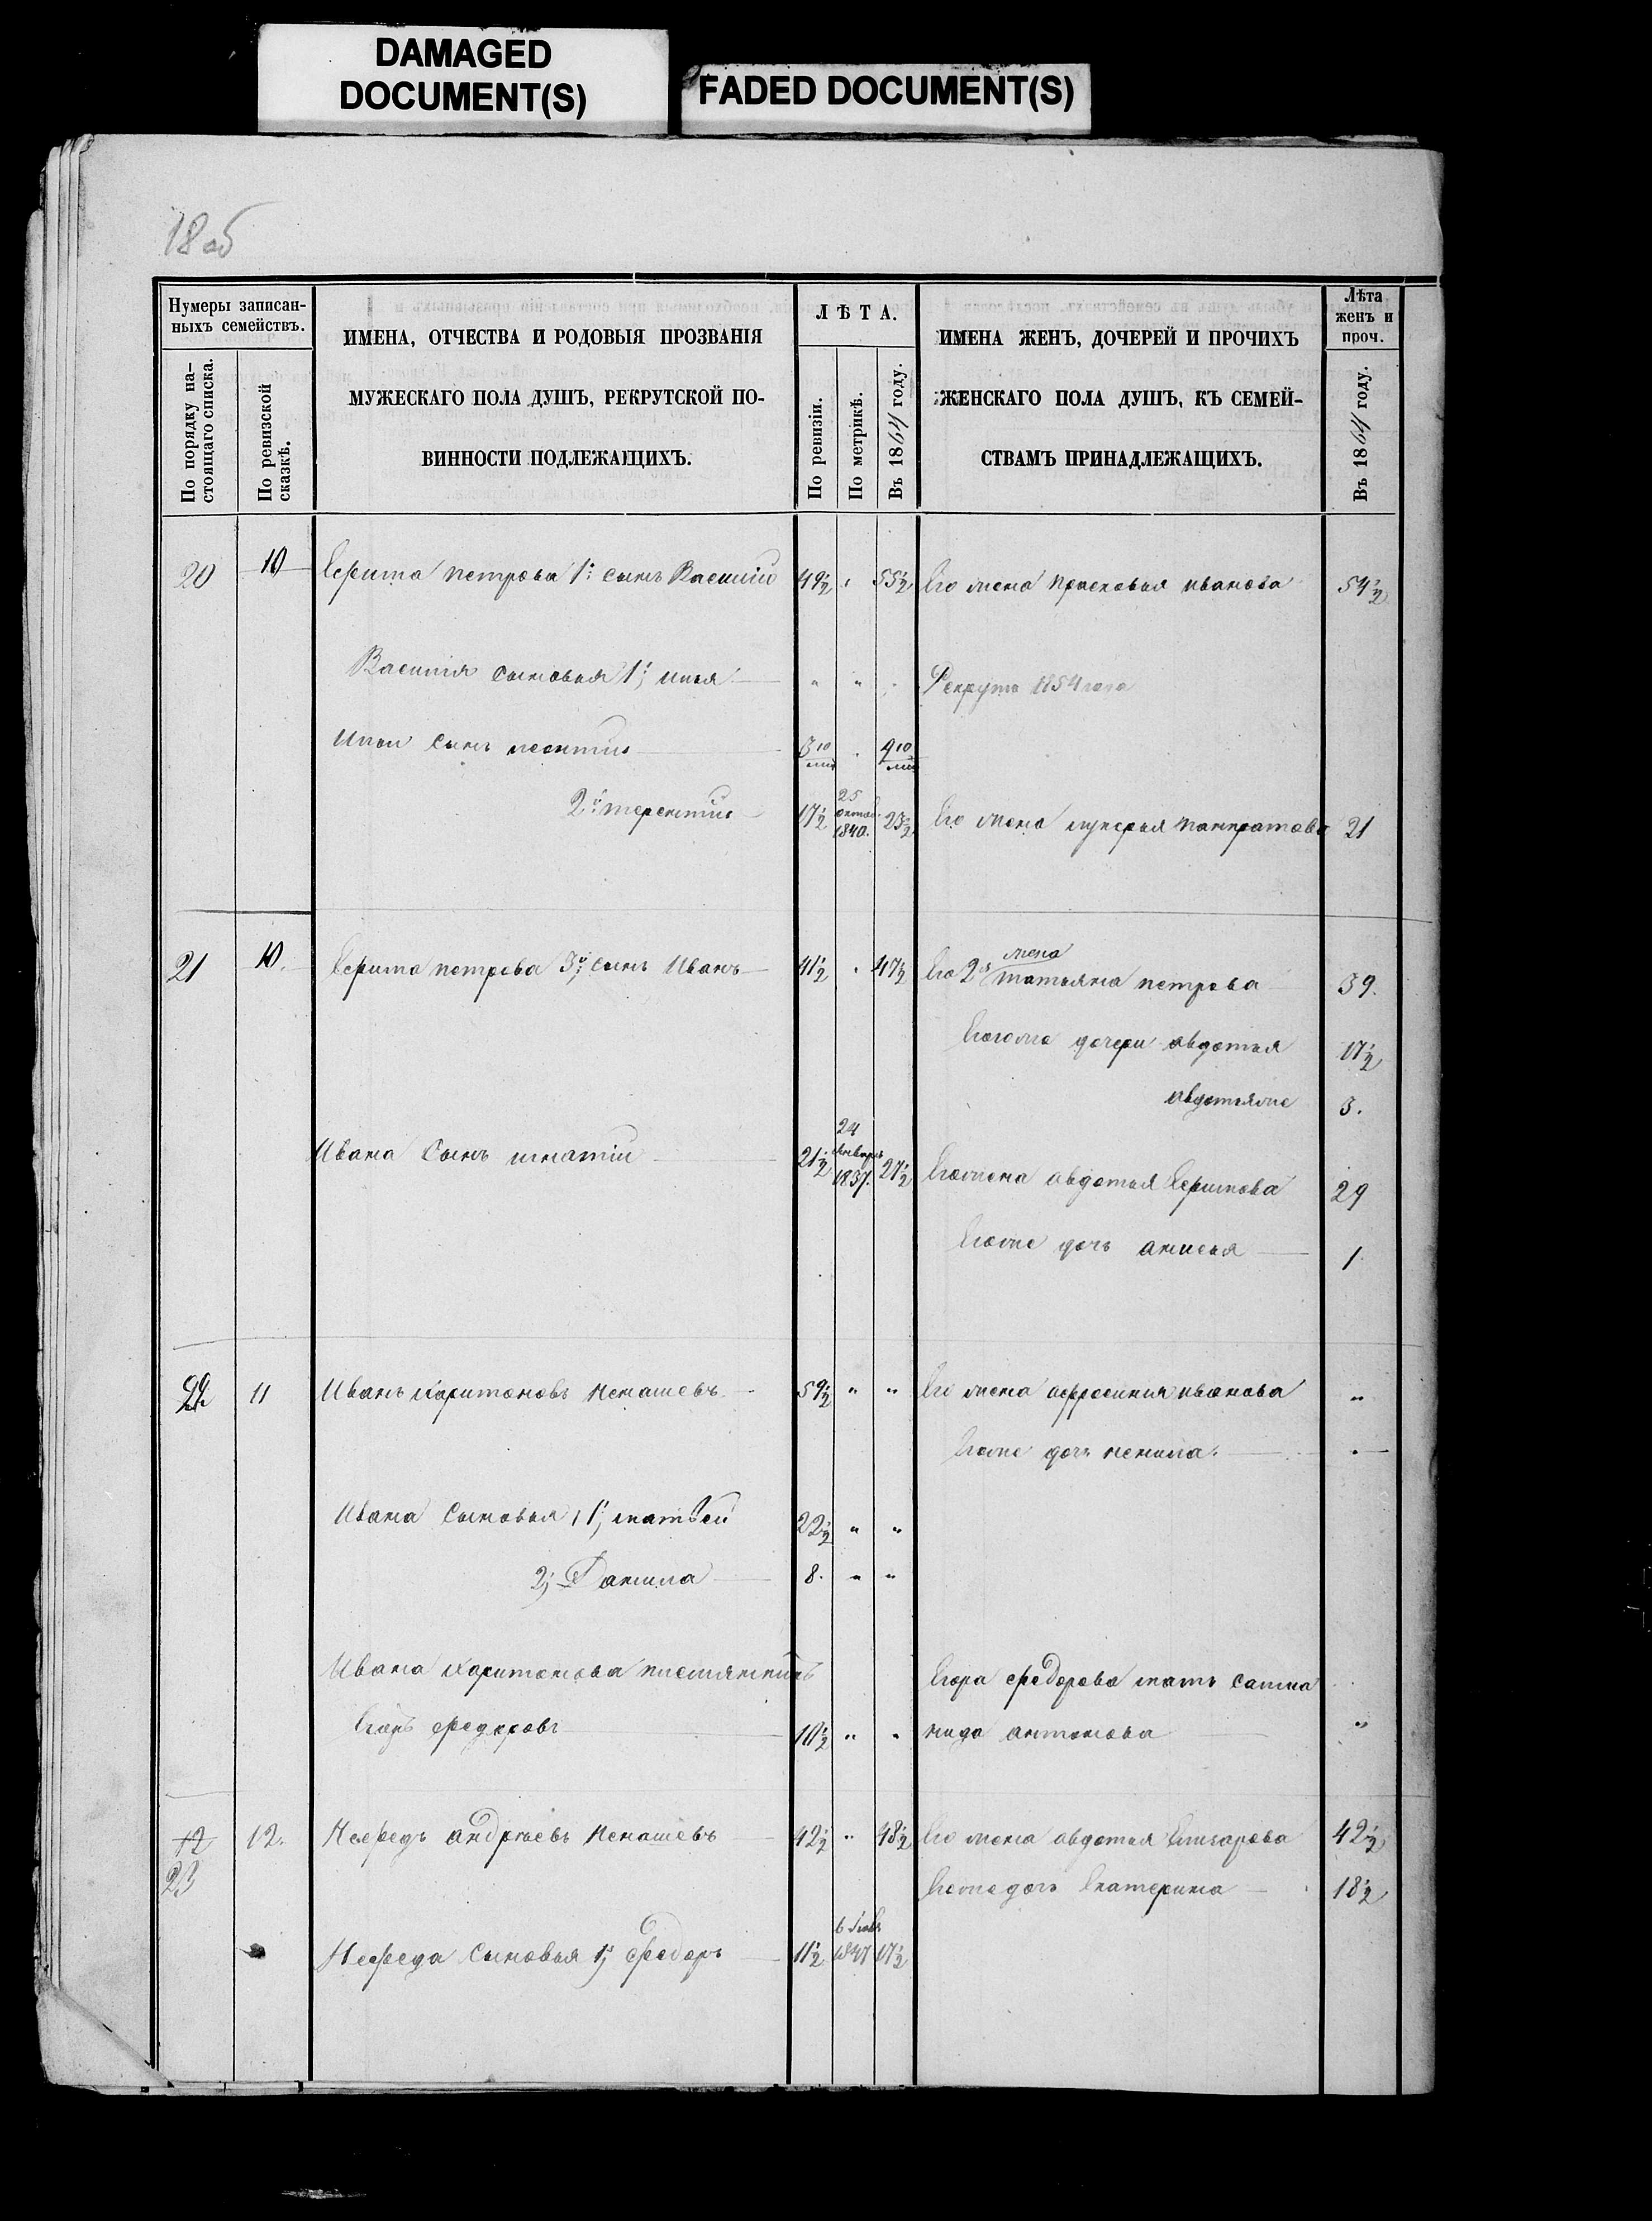 DAMAGED
DOCUMENT(S)
FADED DOCUMENT(S)
18 об
Нумеры записан-
ныхъ семействъ.
По порядку на-
стоящаго списка.
По ревизской
сказкѣ.
ИМЕНА, ОТЧЕСТВА И РОДОВЫЯ ПРОЗВАНІЯ
МУЖЕСКАГО ПОЛА ДУШЪ, РЕКРУТСКОЙ ПО-
ВИННОСТИ ПОДЛЕЖАЩИХЪ.
ЛѢТА.
По ревизіи.
По метрикѣ.
Въ 1864 году.
ИМЕНА ЖЕНЪ, ДОЧЕРЕЙ И ПРОЧИХЪ
ЖЕНСКАГО ПОЛА ДУШЪ, КЪ СЕМЕЙ-
СТВАМЪ ПРИНАДЛЕЖАЩИХЪ.
Лѣта
женъ и
проч.
Въ 1864 году.
20 10 петрова 1й сынъ Василій 49½ " 55½ Его жена прасковья иванова 54½
Василія сыновья 1й илья " " " Рекрутъ 1854 года
Ильи сынъ леонтій 3 10 мѣ " 9 10 мѣ
2й терентій 17½ 25 октяб. 1840. 23½ Его жена лукерья панкратова 21
21 10. петрова 3й сынъ Иванъ 41½ " 47½ Его 2я жена татьяна петрова 39.
Егоже дочери авдотья 17½
авдотьяже 3.
Ивана сынъ игнатій 21½ 24 Январь 1837. 27½ Егожена авдотья 29
Егоже дочь анисья 1.
22 11 Иванъ Харитоновъ Ненашевъ 59½ " " Его жена афросинья иванова "
Егоже дочь ненила. "
Ивана сыновья, 1й матвей 22½ " "
2й Данила 8. " "
Ивана Харитонова племянникъ
Егоръ федоровъ 10½ " "
Егора федорова мать соломо
нида антонова "
12 12. Нефедъ андреевъ Ненашевъ 42½ " 48½ Его жена авдотья 42½
23
Егоже дочь Екатерина 18½
Нефеда сыновья 1й федоръ 11½ 1847 17½